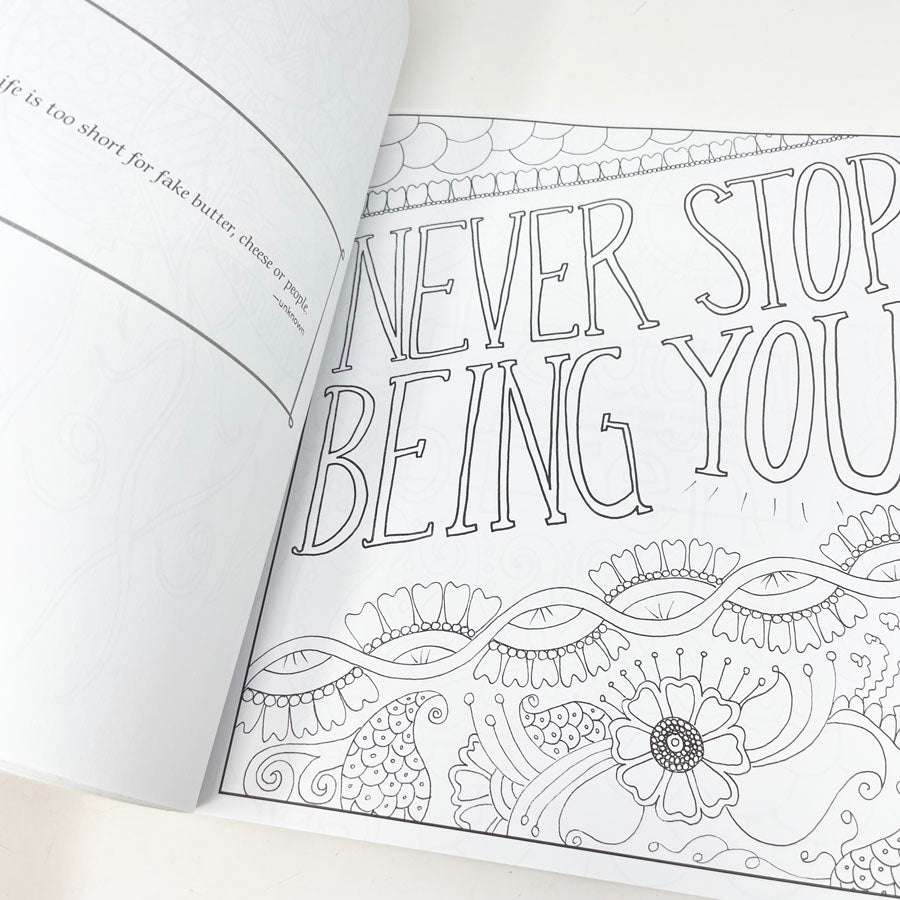 ife is too short for fake butter, cheese or people.
—unknown
NEVER STOP
BEING YOU